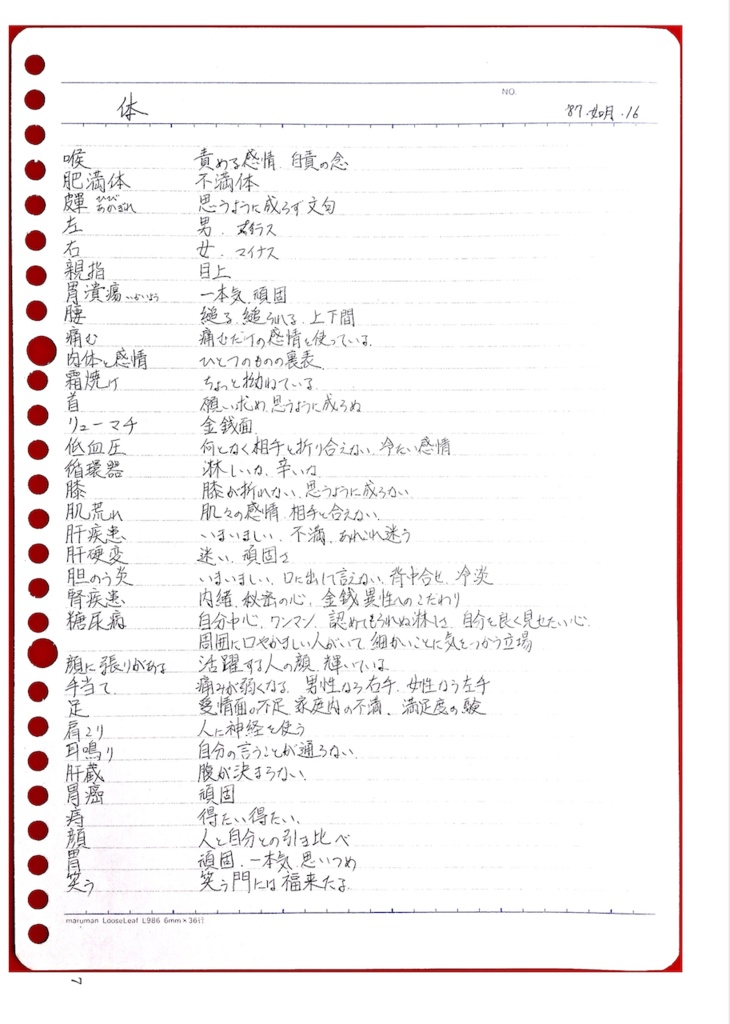 NO.
体 '87.如月.16
喉 責める感情 自責の念
肥満体 不満体
皹 ひび あかぎれ 思うように成らず文句
左 男. プラス
右 女. マイナス
親指 目上
胃潰瘍 いかいよう 一本気.頑固
腰 縋る.縋られる.上下間
痛む 痛むだけの感情を使っている.
肉体と感情 ひとつのものの裏表
霜焼け ちょっと拗ねている.
首 願い求め.思うように成らぬ
リューマチ 金銭面.
低血圧 何となく相手と折り合えない.冷たい感情
循環器 淋しいか.辛いか
膝 膝が折れない.思うように成らない
肌荒れ 肌々の感情.相手と合えない.
肝疾患 いまいましい.不満.あれこれ迷う
肝硬変 迷い.頑固さ
胆のう炎 いまいましい.口に出して言えない.背中合せ.冷炎
腎疾患 内緒.秘密の心.金銭.異性へのこだわり
糖尿病 自分中心.ワンマン.認めてもらえぬ淋しさ.自分を良く見せたい心.
周囲に口やかましい人がいて.細かいことに気をつかう立場
顔に張りがある 活躍する人の顔.輝いている.
手当て 痛みが弱くなる.男性なら右手.女性なら左手
足 愛情面の不足.家庭内の不満.満足度の
肩こり 人に神経を使う
耳鳴り 自分の言うことが通らない.
肝蔵 腹が決まらない.
胃癌 頑固
痔 得たい得たい.
顔 人と自分との引き比べ
胃 頑固.一本気.思いつめ
笑う 笑う門には福来たる.
maruman LooseLeaf L986 6mm×36行
7